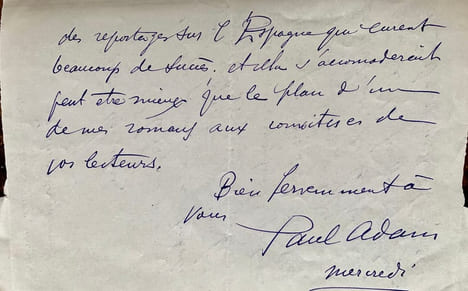 des reportages sur l'Espagne qui eurent
beaucoup de succès. et
peut etre mieux que le plan d'un
de mes romans aux de
vos lecteurs.
Bien fervemment à
vous
Paul Adam
mercredi